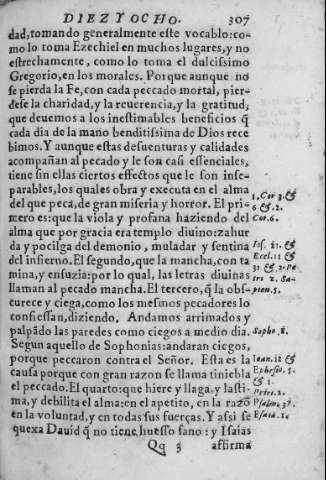 DIEZ Y OCHO. 307
dad, tomando generalmente este vocablo: co-
mo lo toma Ezechiel en muchos lugares, y no
estrechamente, como lo toma el dulcissimo
Gregorio, en los morales. Porque aunque no
se pierda la Fe, con cada peccado mortal, pier-
dese la charidad, y la reuerencia, y la gratitud,
que deuemos a los inestimables beneficios q̃
cada dia de la mano benditissima de Dios rece
bimos. Y aunque estas desuenturas y calidades
acompañan al pecado y le son casi essenciales,
tiene sin ellas ciertos effectos que le son inse-
parables, los quales obra y executa en el alma
del que peca, de gran miseria y horror. El pri-
mero es: que la viola y profana haziendo del
alma que por gracia era templo diuino: zahur
da y pocilga del demonio, muladar y sentina
del infierno. El segundo, que la mancha, con ta
mina, y ensuzia: por lo qual, las letras diuinas
llaman al pecado mancha. El tercero, q̃ la obs-
curece y ciega, como los mesmos pecadores lo
confiessan, diziendo. Andamos arrimados y
palpãdo las paredes como ciegos a medio dia.
Segun aquello de Sophonias: andaran ciegos,
porque peccaron contra el Señor. Esta es la
causa porque con gran razon se llama tiniebla
el peccado. El quarto: que hiere y llaga, y lasti-
ma, y debilita el alma: en el apetito, en la razõ
en la voluntad, y en todas sus fuerças. Y assi se
quexa Dauid q̃ no tiene huesso sano: y Isaias
Qq 3 affirma
1. Cor 3. &
6 & 2.
Cor. 6.
Ios. 21. &
Eccl. 11 &
31 & 2. Pe
tri 2. Sa-
pien. 5.
Sopho. 1.
Ioan. 12 &
Ephes. 5.
& 1.
Petri. 2.
Psalm. 37.
Esaiæ. 1.